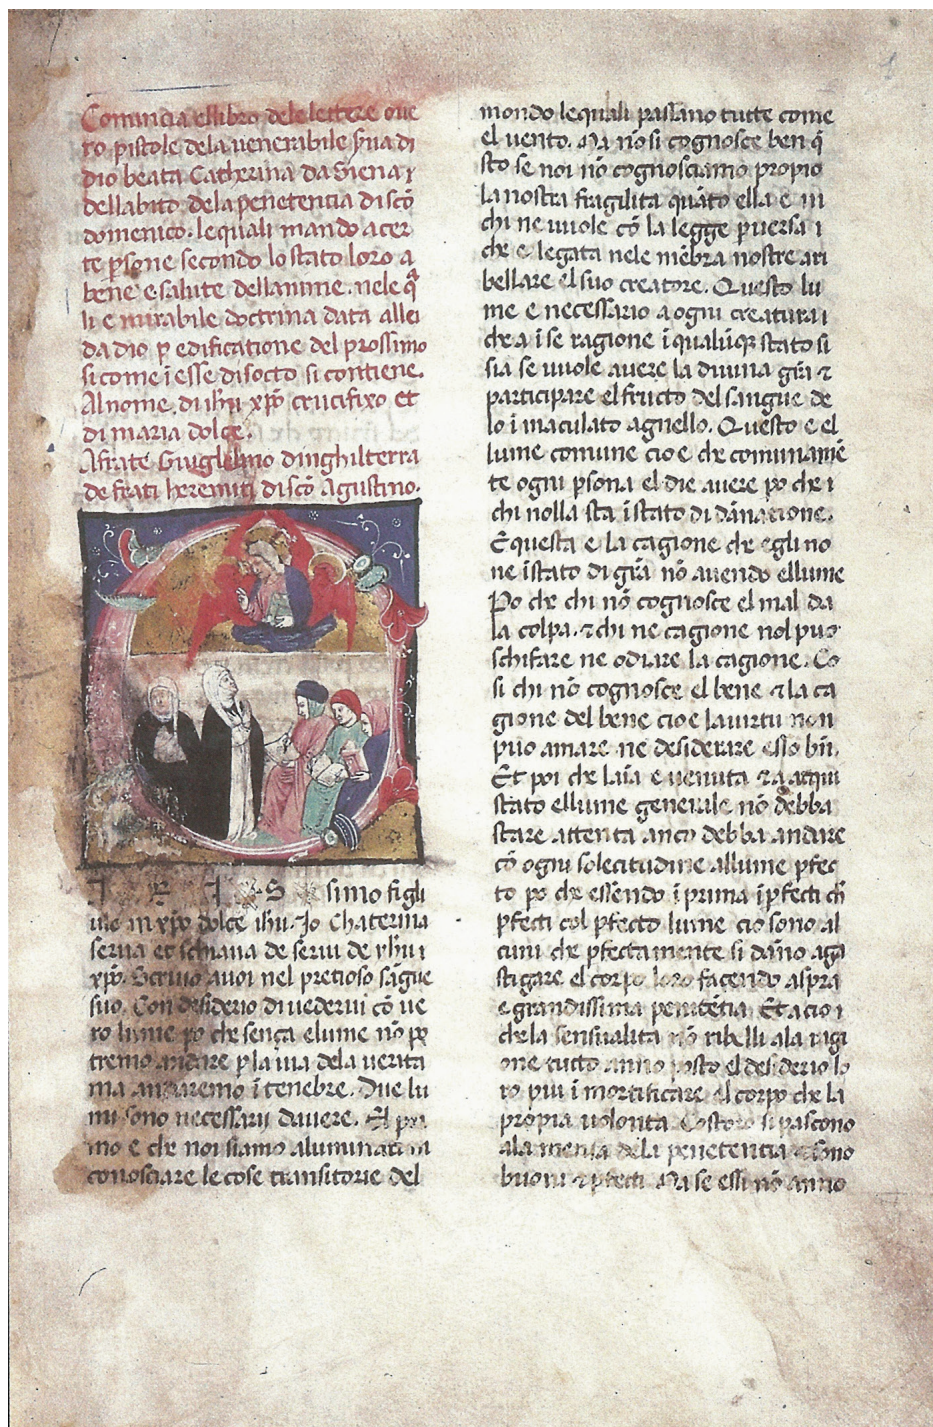 Comincia ellibro dele lettere oue
ro pistole dela uenerabile s̄ua di
dio beata Catherina da Siena ⁊
dellabito dela penetencia di scō
domenico. le quali mando a cer
te p̱sone secondo lo stato loro a
bene e salute dellanime. nele q̄
li e mirabile doctrina data allei
da dio p̱ edificatione del prossimo
si come ī esse di socto si contiene.
Al nome di ihū xp̄o crucifixo et
di maria dolce.
A frate Guiglelmo dinghilterra
de frati heremiti di scō Agustino.
simo figli
uolo in xp̄o dolce ihū. Io Chaterina
serua et schiaua de serui de yhū
xp̄o. Scriuo a uoi nel pretioso sāgue
suo. Con desiderio di uederui cō ue
ro lume po che sença elume nō po
tremo andare p̱ la uia dela uerita
ma andaremo ī tenebre. Due lu
mi sono necessarij dauere. El pri
mo e che noi siamo aluminati in
conosciare le cose transitorie del
mondo le quali passano tutte come
el uento. Ma nō si cognosce ben q̄
sto se noi nō cognosciamo propio
la nostra fragilita quāto ella e in
chi ne uuole cō la legge p̱uersa
che e legata nele mēbra nostre a ri
bellare el suo creatore. Questo lu
me e necessario a ogni creatura
che a ī se ragione ī qualūq̨ stato si
sia se uuole auere la diuina grā ⁊
participare el fructo del sangue de
lo īmaculato agnello. Questo e el
lume comune cioe che comunamē
te ogni p̱sona el die auere po che
chi nolla sta ī stato di dānatione.
E questa e la cagione che egli no
ne ī stato di grā nō auendo ellume
Po che chi nō cognosce el mal da
la colpa. ⁊ chi ne cagione nol puo
schifare ne odiare la cagione. Co
si chi nō cognosce el bene ⁊ la ca
gione del bene cioe la uirtu non
puo amare ne desiderare esso bn̄.
Et poi che laīa e uenuta ⁊ a acqui
stato ellume generale nō debba
stare attenta anco debba andare
cō ogni solecitudine al lume p̱fec
to po che essendo ī prima īp̱fecti
p̱fecti col p̱fecto lume cio sono al
cuni che p̱fectamente si dāno a ga
stigare el corpo loro facendo aspra
e grandissima penitētia. Et acio
che la sensualita nō ribelli ala ragi
one tutto anno posto el desiderio lo
ro piu ī mortificare el corpo che la
propia uolonta. Costoro si pascono
ala mensa dela penetencia ⁊ sono
buoni ⁊ p̱fecti. Ma se essi nō anno